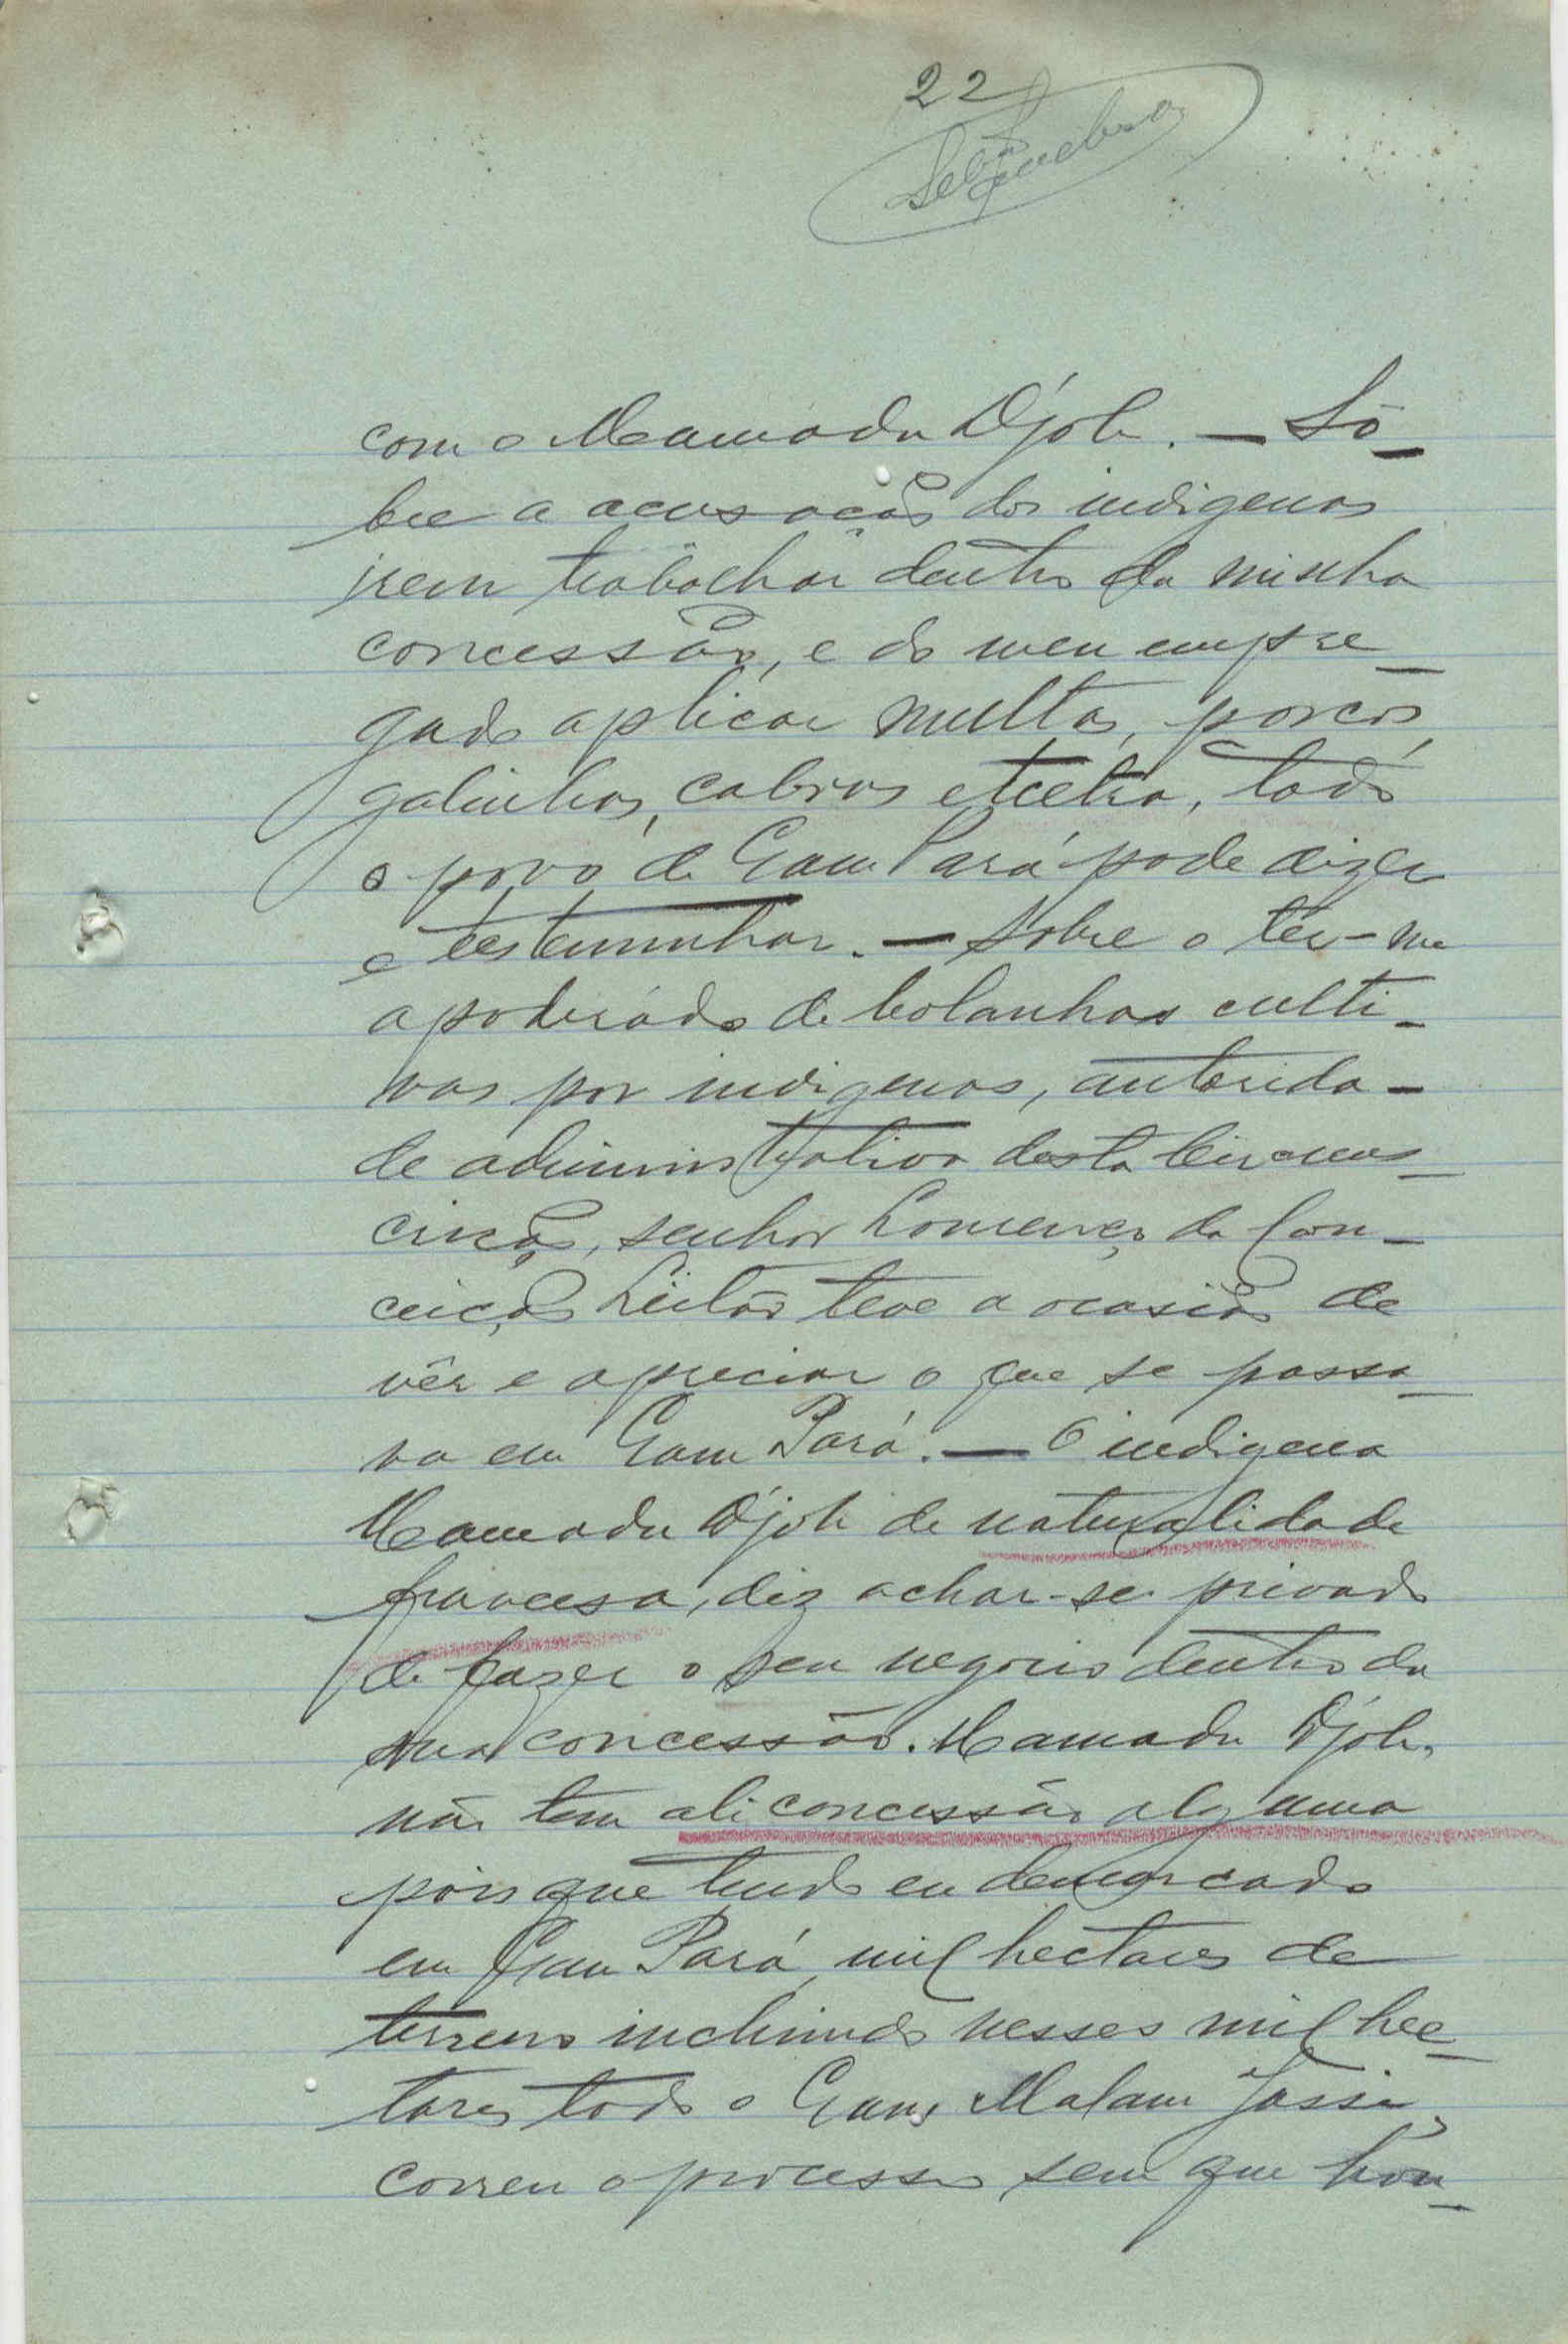 22
com o Mamadu Djob. — Sô-
bre a acusação dos indigenas
irem trabalhar dentro da minha
concessão, e do meu empre-
gado aplicar multas, porcos,
galinhas, cabras etcetra, todo
o povo de Gam Pará pode dizer
e testemunhar. — Sobre o têr-me
apoderado de bolanhas culti-
vas por indigenas, autorida-
de administrativa desta Circuns-
crição, senhor Lourenço da Con-
ceição Leitão teve a ocasião de
vêr e apreciar o que se passa-
va em Gam Pará. — O indigena
Mamadu Djob de naturalidade
francesa, diz achar-se privado
de fazer o seu negocio dentro da
sua concessão. Mamadu Djob,
não tem ali concessão alguma
pois que tendo eu demarcado
em Gam Pará, mil hectares de
terreno incluindo nesses mil hec-
tares todo o Gam Malam Jassi,
correu o processo, sem que hou-